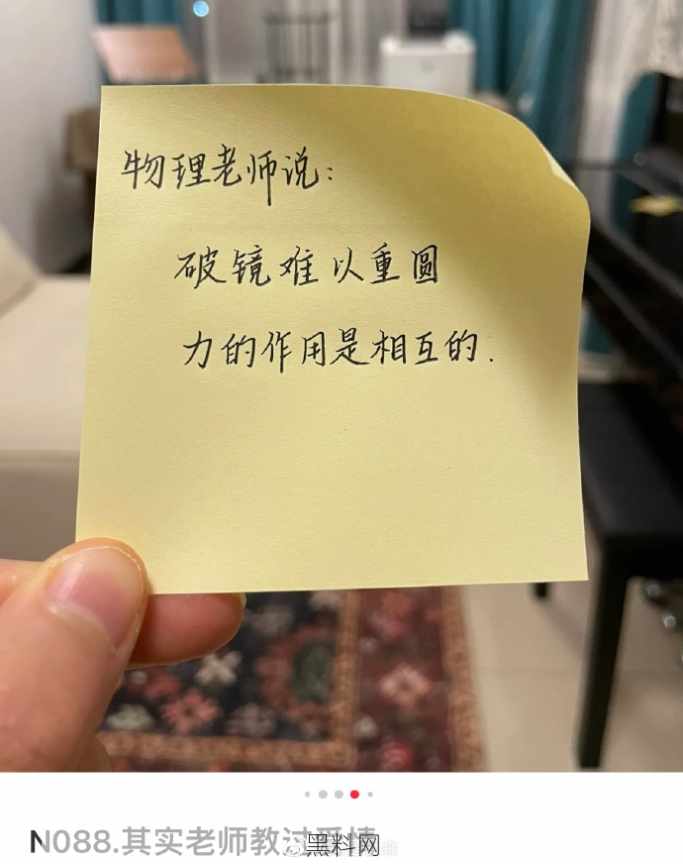 物理老师说：
破镜难以重圆
力的作用是相互的.
N088.其实老师教过爱情
黑料网